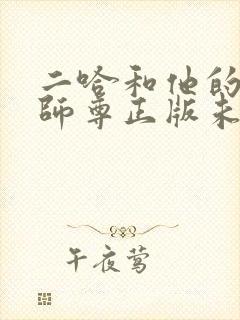 二哈和他的
師尊正版未
午夜莺